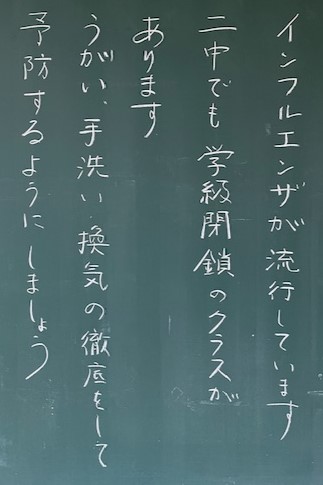 インフルエンザが流行しています
二中でも学級閉鎖のクラスが
あります
うがい、手洗い、換気の徹底をして
予防するようにしましょう